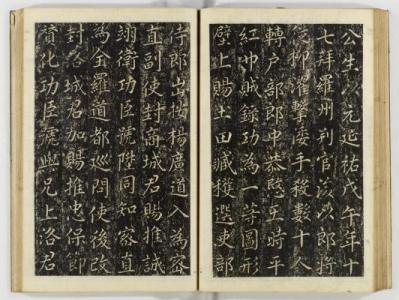 公生以元延祐戊午年十
七拜羅州判官後以郎将
從柳濯擊倭手殺數十人
轉戶部郎中恭愍王時平
紅巾賊錄功為一等圖形
壁上賜土田臧獲選吏部
侍郎出按楊廣道入為密
直副使封商城君賜推誠
翊衛功臣號陞同知密直
為全羅道都巡問使後改
封洛城君加賜推忠保節
宣化功臣號與兄上洛君